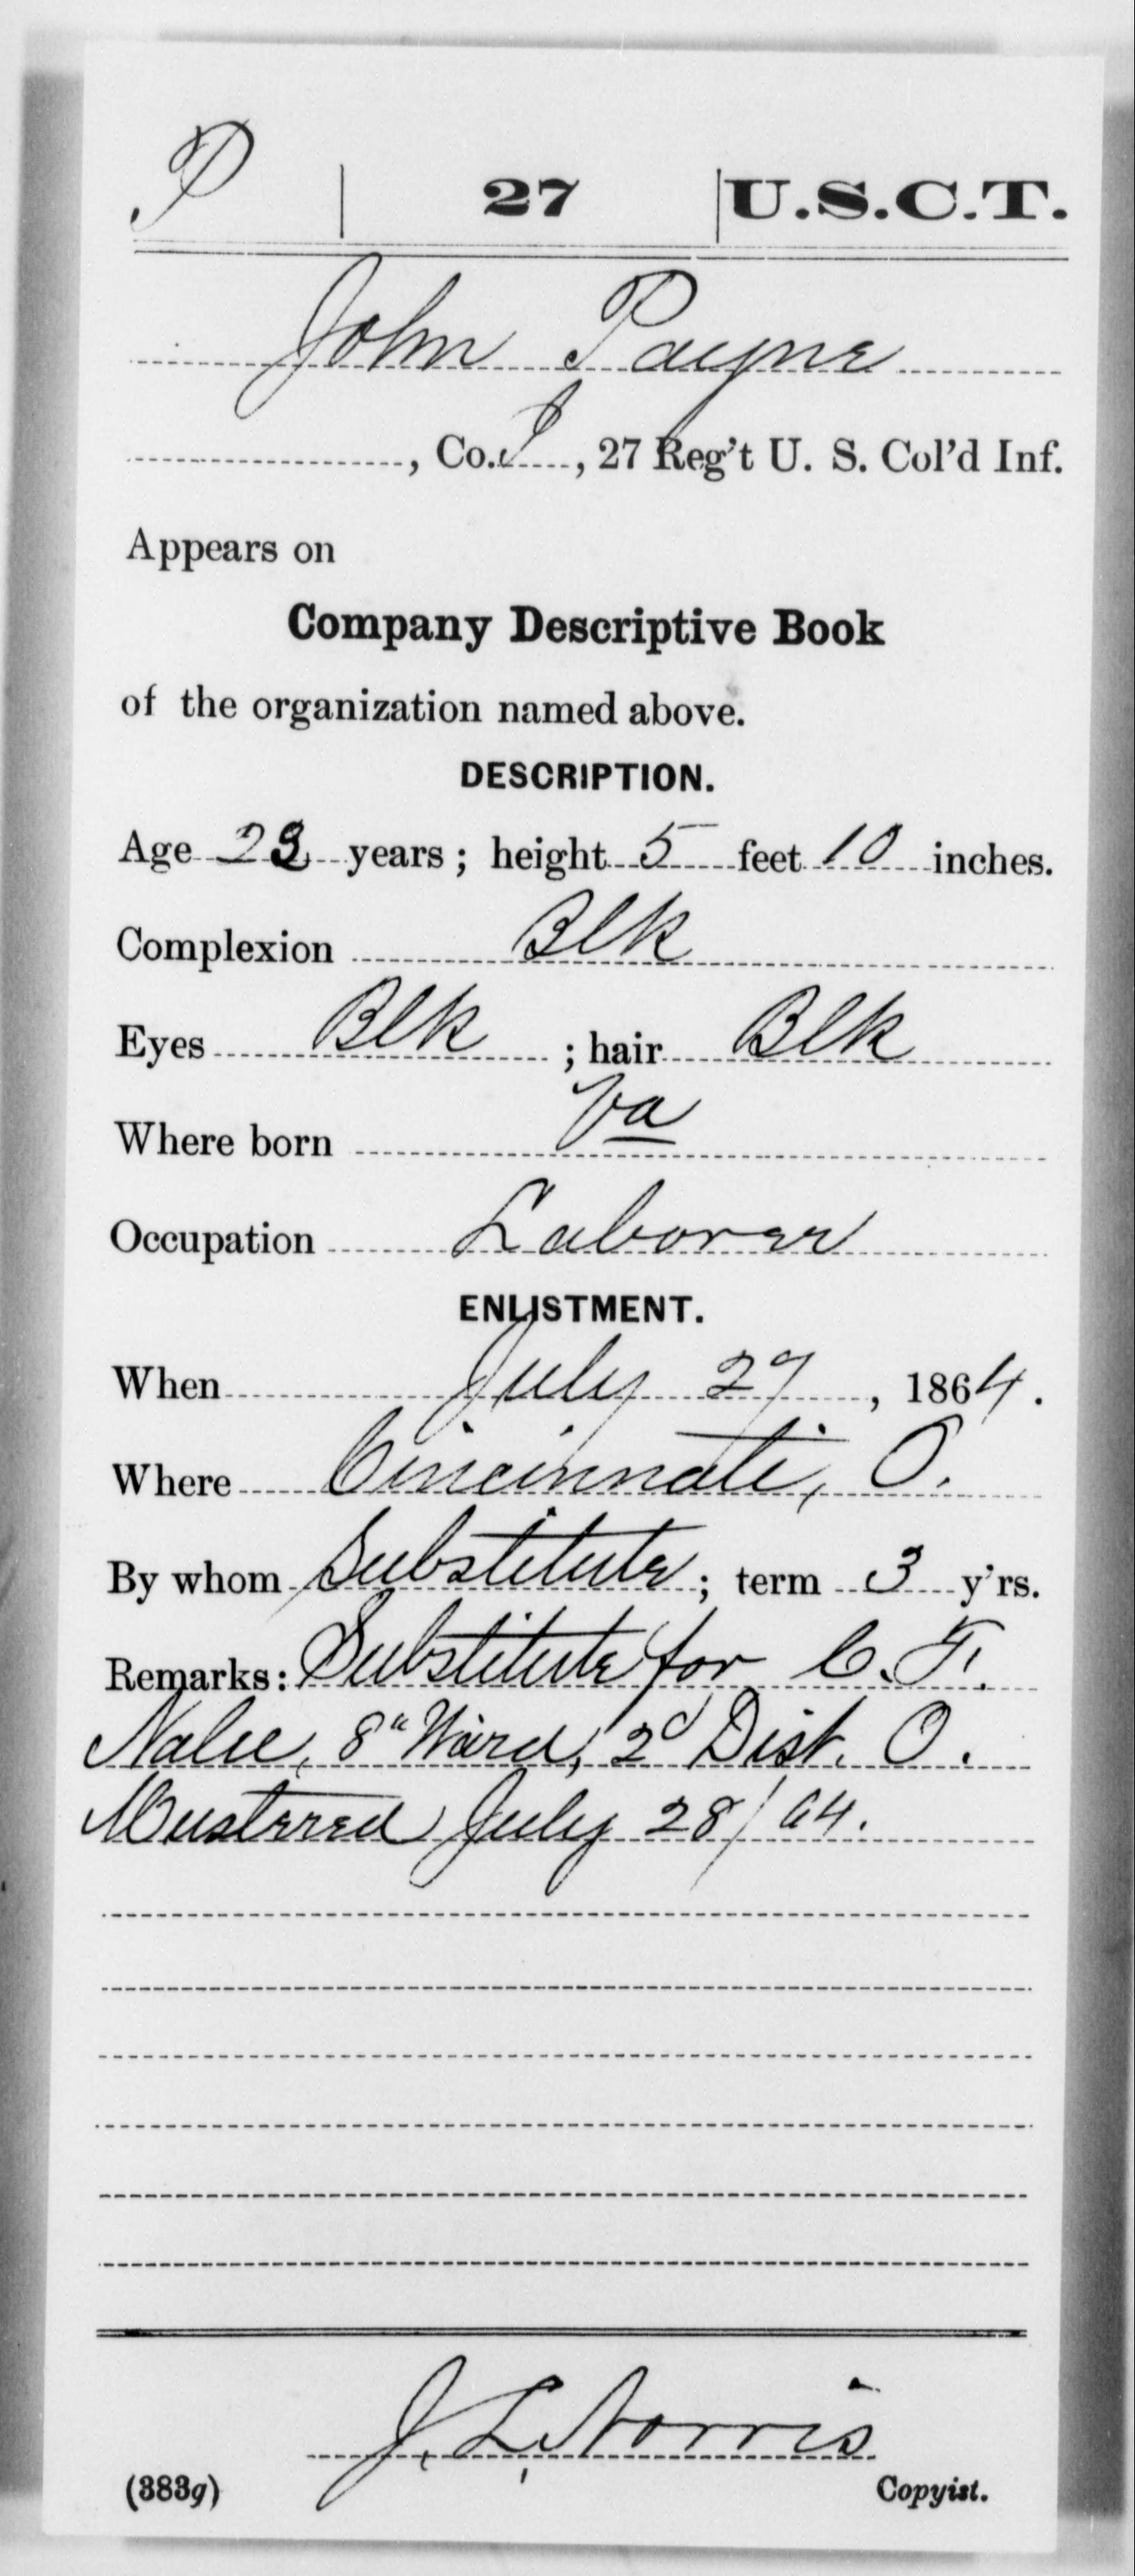 P 27 U.S.C.T.
John Payne
, Co. I, 27 Reg't U. S. Col'd Inf.
Appears on
Company Descriptive Book
of the organization named above.
DESCRIPTION.
Age 23 years; height 5 feet 10 inches.
Complexion Blk
Eyes Blk; hair Blk
Where born Va
Occupation Laborer
ENLISTMENT.
When July 27, 1864.
Where Cincinnati, O.
By whom Substitute; term 3 y'rs.
Remarks: Substitute for C. F.
8" Ward, 2d Dist. O.
Mustered July 28/64.
J. L. Norris
(383g) Copyist.